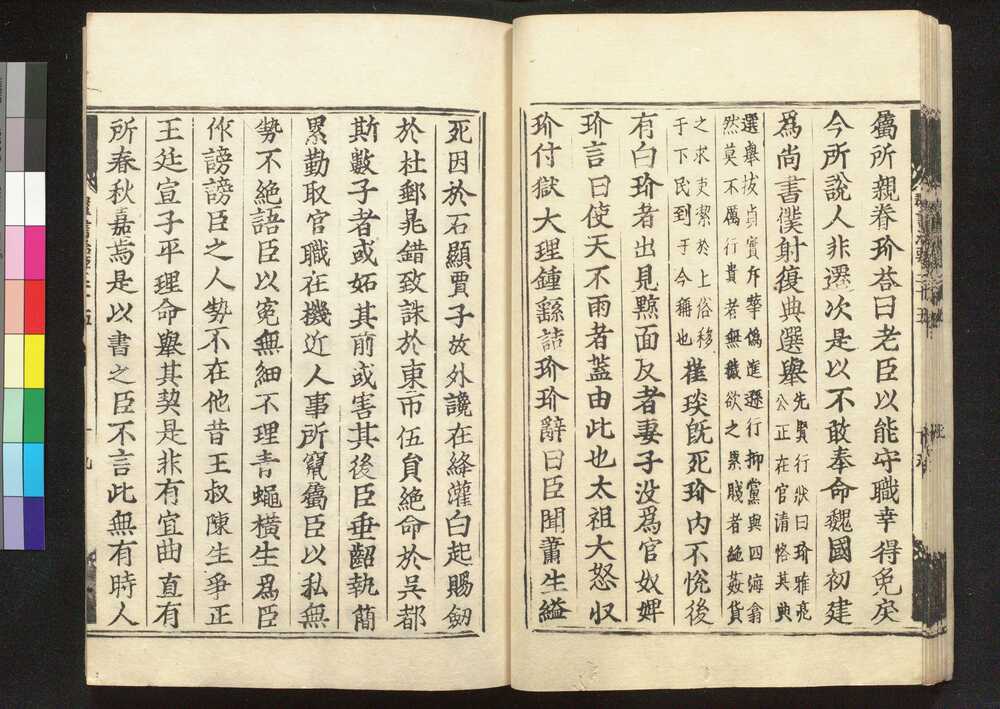 屬所親眷玠荅曰老臣以能守職幸得免戾
今所說人非遷次是以不敢奉命魏國初建
爲尚書僕射復典選舉
先賢行狀曰玠雅亮
公正在官清恪其典
選舉拔貞實斥華僞進遜行抑黨與四海翕
然莫不厲行貴者無穢欲之累賤者絶姦貨
之求吏潔於上俗移
于下民到于今稱也
崔琰旣死玠内不悅後
有白玠者出見黥面反者妻子没爲官奴婢
玠言曰使天不雨者蓋由此也太祖大怒収
玠付獄大理鍾繇詰玠玠辭曰臣聞蕭生縊
死因於石顯賈子放外讒在絳灌白起賜劒
於杜郵晁錯致誅於東市伍員絶命於吳都
斯數子者或妬其前或害其後臣垂齠執簡
累勤取官職在機近人事所竄屬臣以私無
勢不絶語臣以寃無細不理青蠅横生爲臣
作謗謗臣之人勢不在他昔王叔陳生爭正
王廷宣子平理命舉其契是非有宜曲直有
所春秋嘉焉是以書之臣不言此無有時人